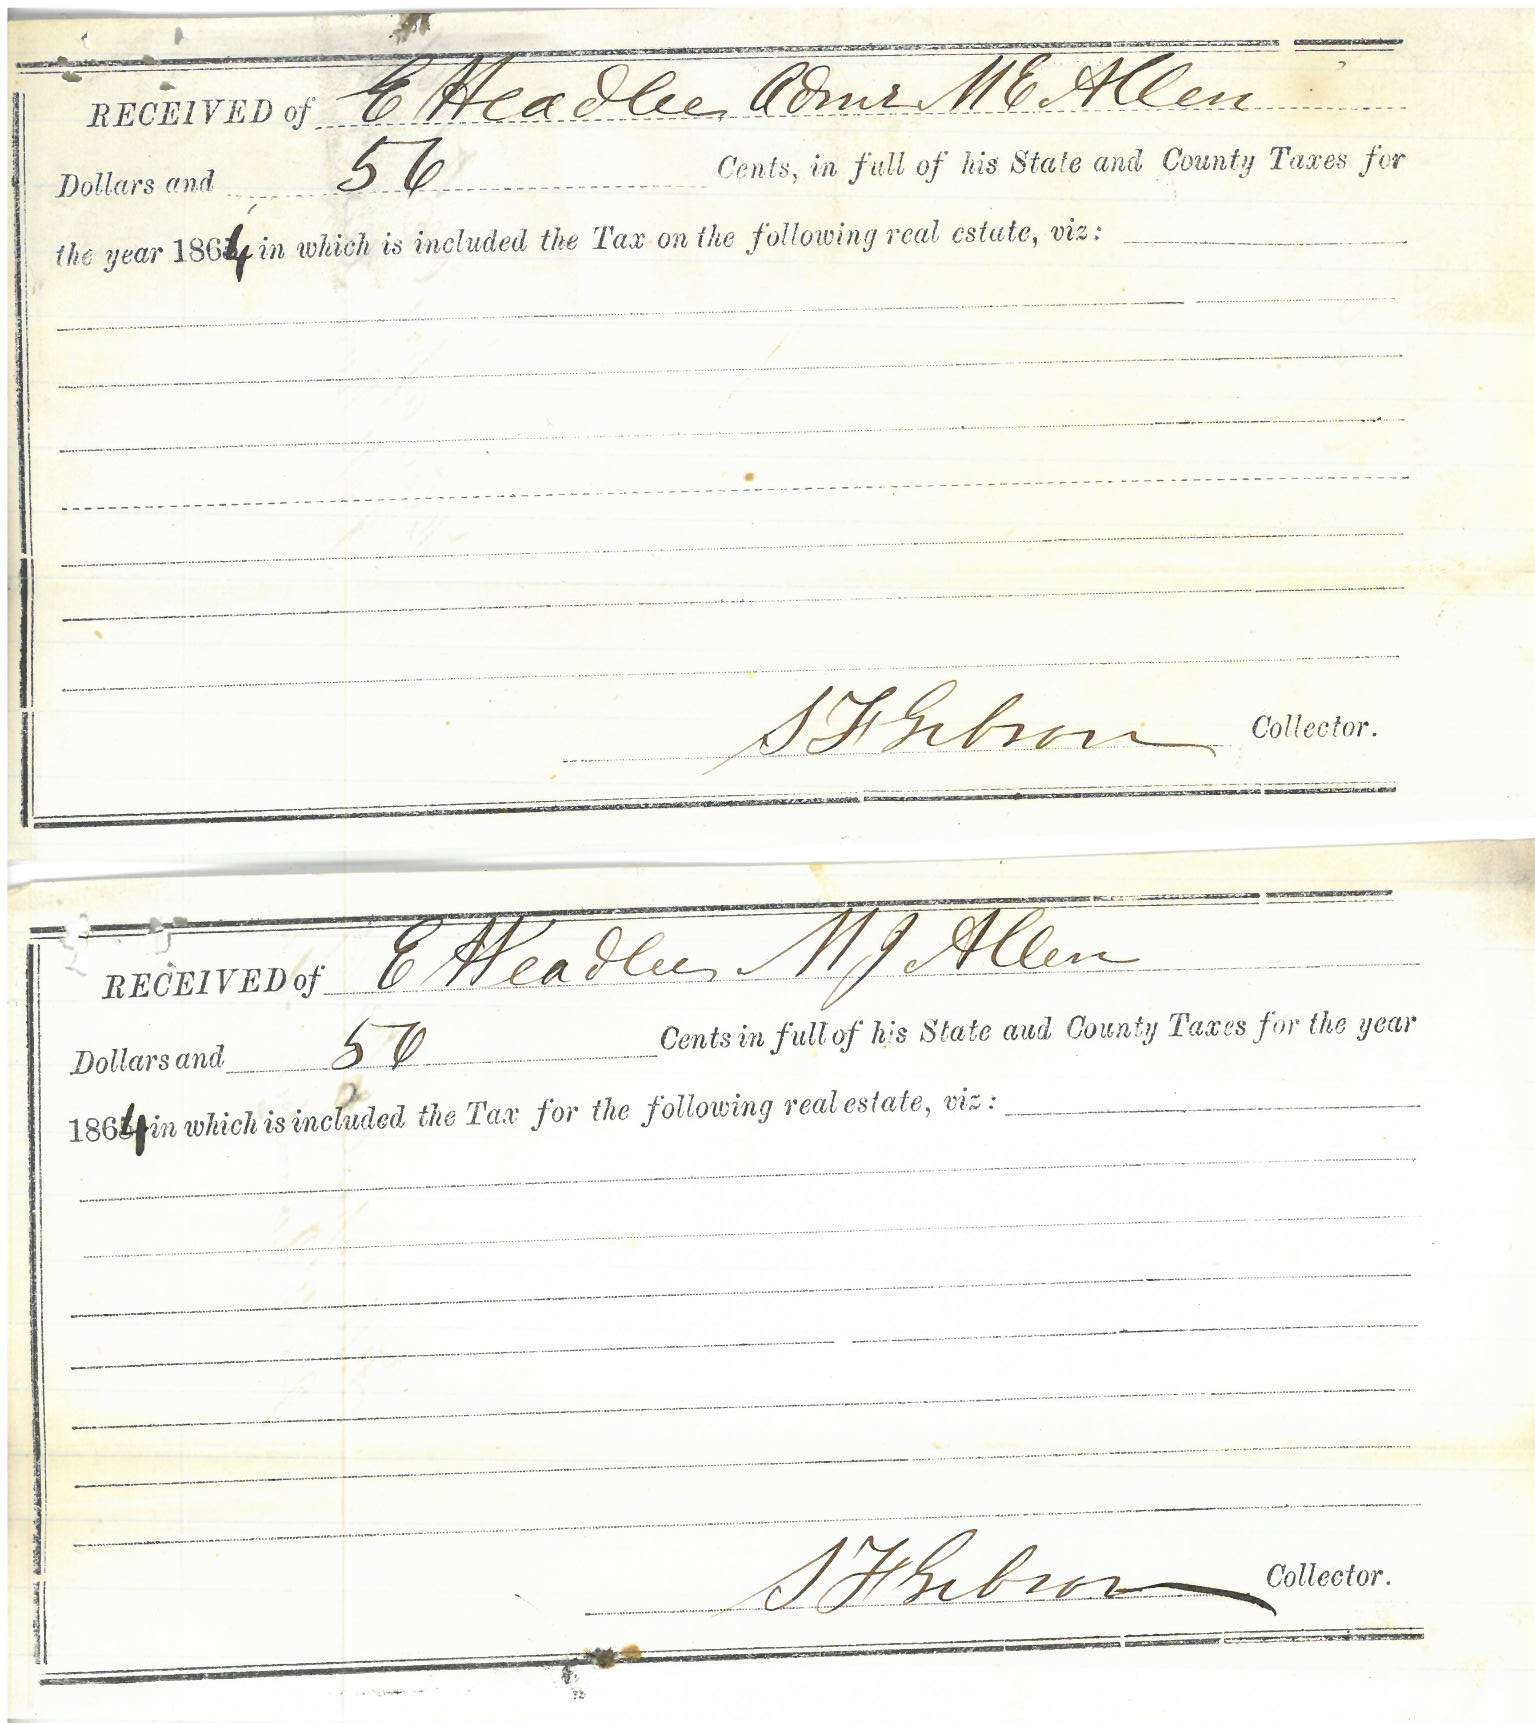 RECEIVED of E Headlee Admr M E Allen
Dollars and 56 Cents, in full of his State and County Taxes for
the year 1864 in which is included the Tax on the following real estate, viz:
S F Gibson Collector.
RECEIVED of E Headlee M J Allen
Dollars and 56 Cents in full of his State and County Taxes for the year
1864 in which is included the Tax for the following real estate, viz:
S F Gibson Collector.